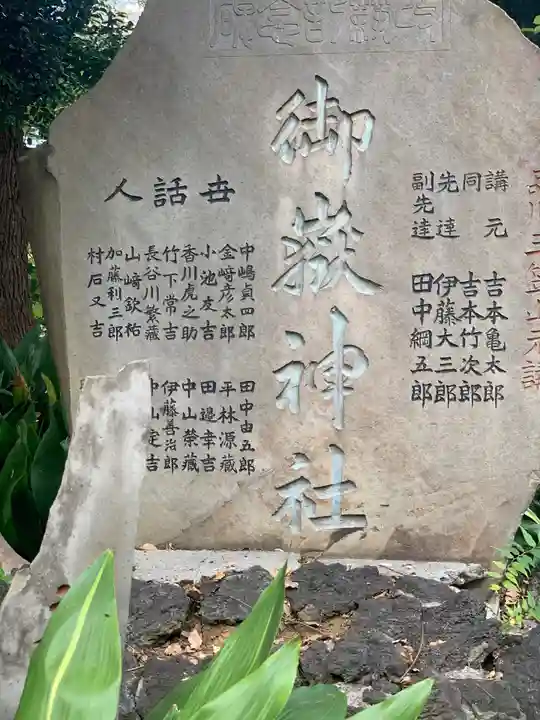 御嶽神社
講元 吉本亀太郎
同 吉本竹次郎
先達 伊藤大三郎
副先達 田中綱五郎
世話人
中嶋貞四郎
金﨑彦太郎
小池友吉
香川虎之助
竹下常吉
長谷川繁蔵
山﨑欽祐
加藤利三郎
村石又吉
田中由五郎
平林源蔵
田邉幸吉
中山榮蔵
伊藤善治郎